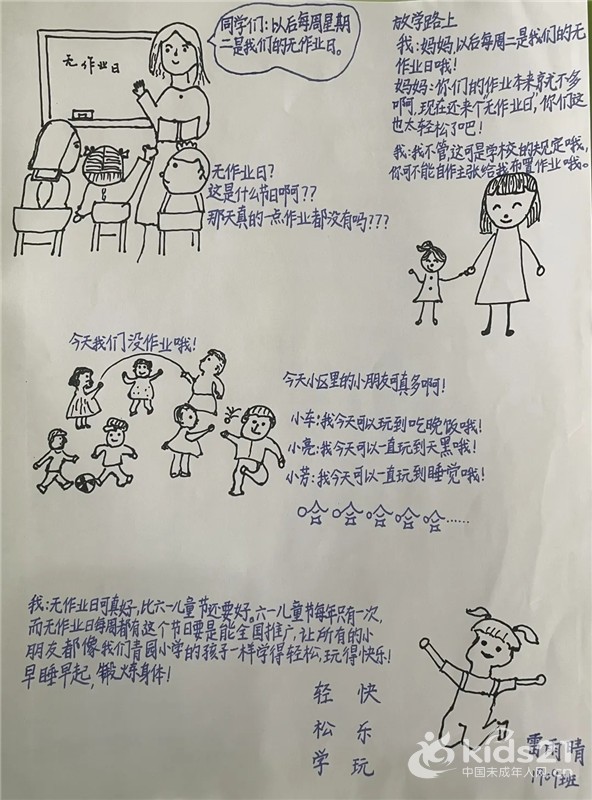 无作业日
同学们：以后每周星期
二是我们的无作业日。
无作业日？
这是什么节日啊？？
那天真的一点作业都没有吗？？？
放学路上
我：妈妈，以后每周二是我们的无
作业日哦！
妈妈：你们的作业本来就不多
啊，现在还来个"无作业日"，你们这
也太轻松了吧！
我：我不管，这可是学校的规定哦，
你可不能自作主张给我布置作业哦。
今天我们没作业哦！
今天小区里的小朋友可真多啊！
小车：我今天可以玩到吃晚饭哦！
小亮：我今天可以一直玩到天黑哦！
小芳：我今天可以一直玩到睡觉哦！
哈哈哈哈哈……
我：无作业日可真好，比六一儿童节还要好。六一儿童节每年只有一次，
而无作业日每周都有这个节日要是能全国推广，让所有的小
朋友都像我们青园小学的孩子一样学得轻松，玩得快乐！
早睡早起，锻炼身体！
轻 快
松 乐
学 玩
雷雨晴
1909班
kids21
中国未成年人网.cn